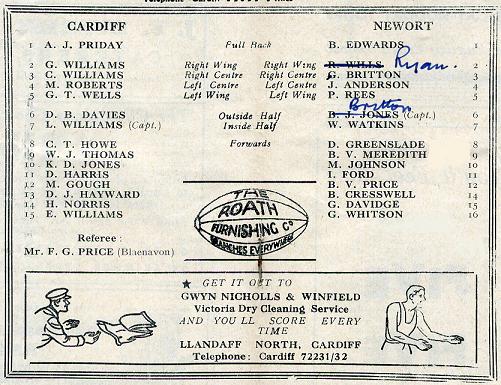 CARDIFF NEWORT
1 A. J. PRIDAY Full Back B. EDWARDS 1
2 G. WILLIAMS Right Wing Right Wing R. WILLS Ryan. 2
3 C. WILLIAMS Right Centre Right Centre G. BRITTON 3
4 M. ROBERTS Left Centre Left Centre J. ANDERSON 4
5 G. T. WELLS Left Wing Left Wing P. REES 5
Britton
6 D. B. DAVIES Outside Half B. J. JONES (Capt.) 6
7 L. WILLIAMS (Capt.) Inside Half W. WATKINS 7
8 C. T. HOWE Forwards D. GREENSLADE 8
9 W. J. THOMAS B. V. MEREDITH 9
10 K. D. JONES M. JOHNSON 10
11 D. HARRIS I. FORD 11
12 M. GOUGH B. V. PRICE 12
13 D. J. HAYWARD B. CRESSWELL 14
14 H. NORRIS G. DAVIDGE 15
15 E. WILLIAMS G. WHITSON 16
THE
ROATH
FURNISHING Co
BRANCHES EVERYWHERE
Referee :
Mr. F. G. PRICE (Blaenavon)
★ GET IT OUT TO
GWYN NICHOLLS & WINFIELD
Victoria Dry Cleaning Service
AND YOU'LL SCORE EVERY
TIME
LLANDAFF NORTH, CARDIFF
Telephone: Cardiff 72231/32